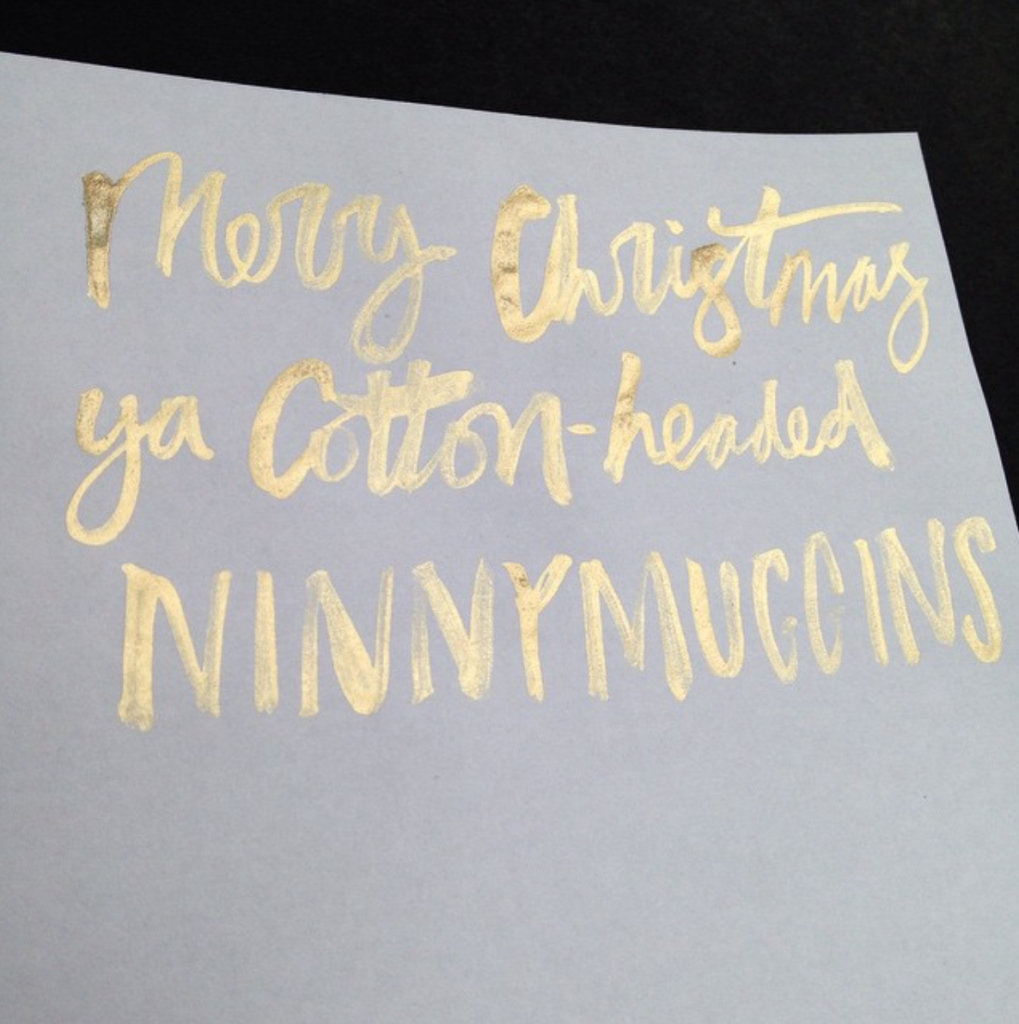 Merry Christmas
ya Cotton-headed
NINNYMUGGINS